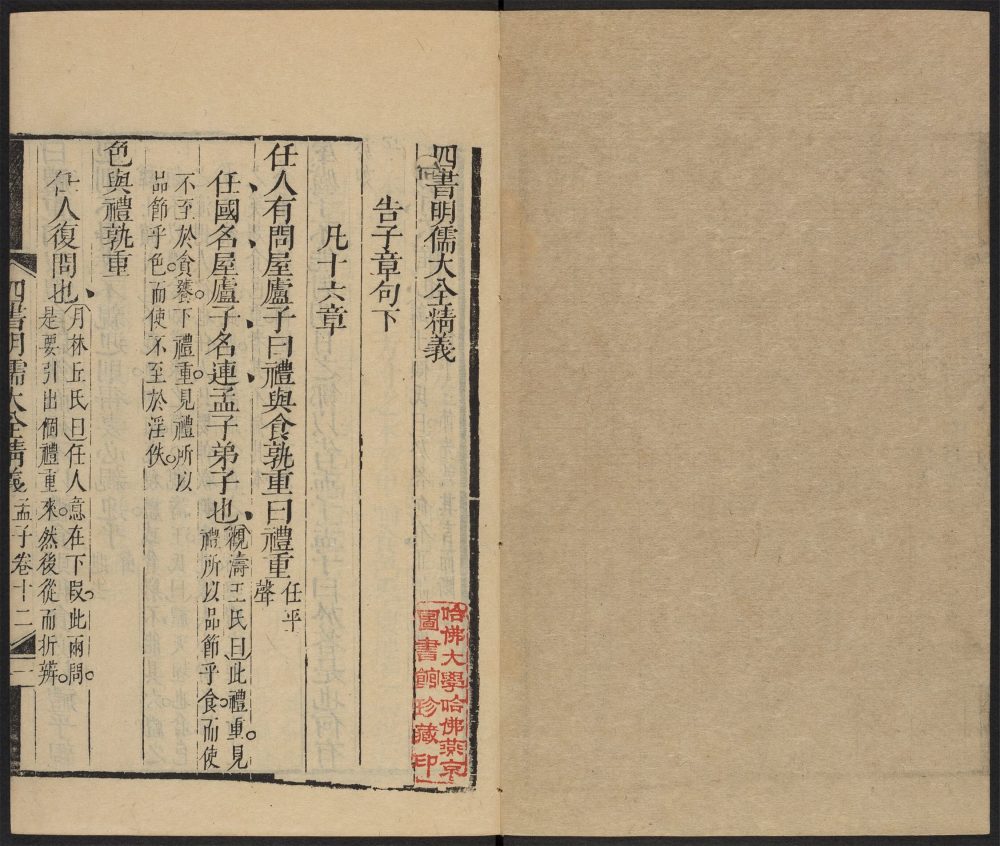 四書明儒大全精義
告子章句下
凡十六章
任人有問屋廬子曰禮與食孰重曰禮重
任平
聲
任國名屋廬子名連孟子弟子也
觀濤王氏曰此禮重見
禮所以品節乎食而使
不至於貪饕下禮重見禮所以
品節乎色而使不至於淫佚
色與禮孰重
任人復問也
月林丘氏曰任人意在下段此兩問
是要引出個禮重來然後從而折辨
四書明儒大全精義 孟子卷十二 一
哈佛大學哈佛燕京
圖書館珍藏印